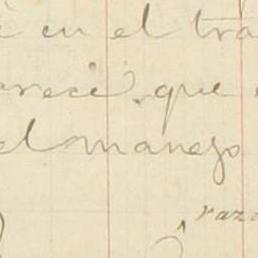 è en el tra
arece, que
el manejo
raz